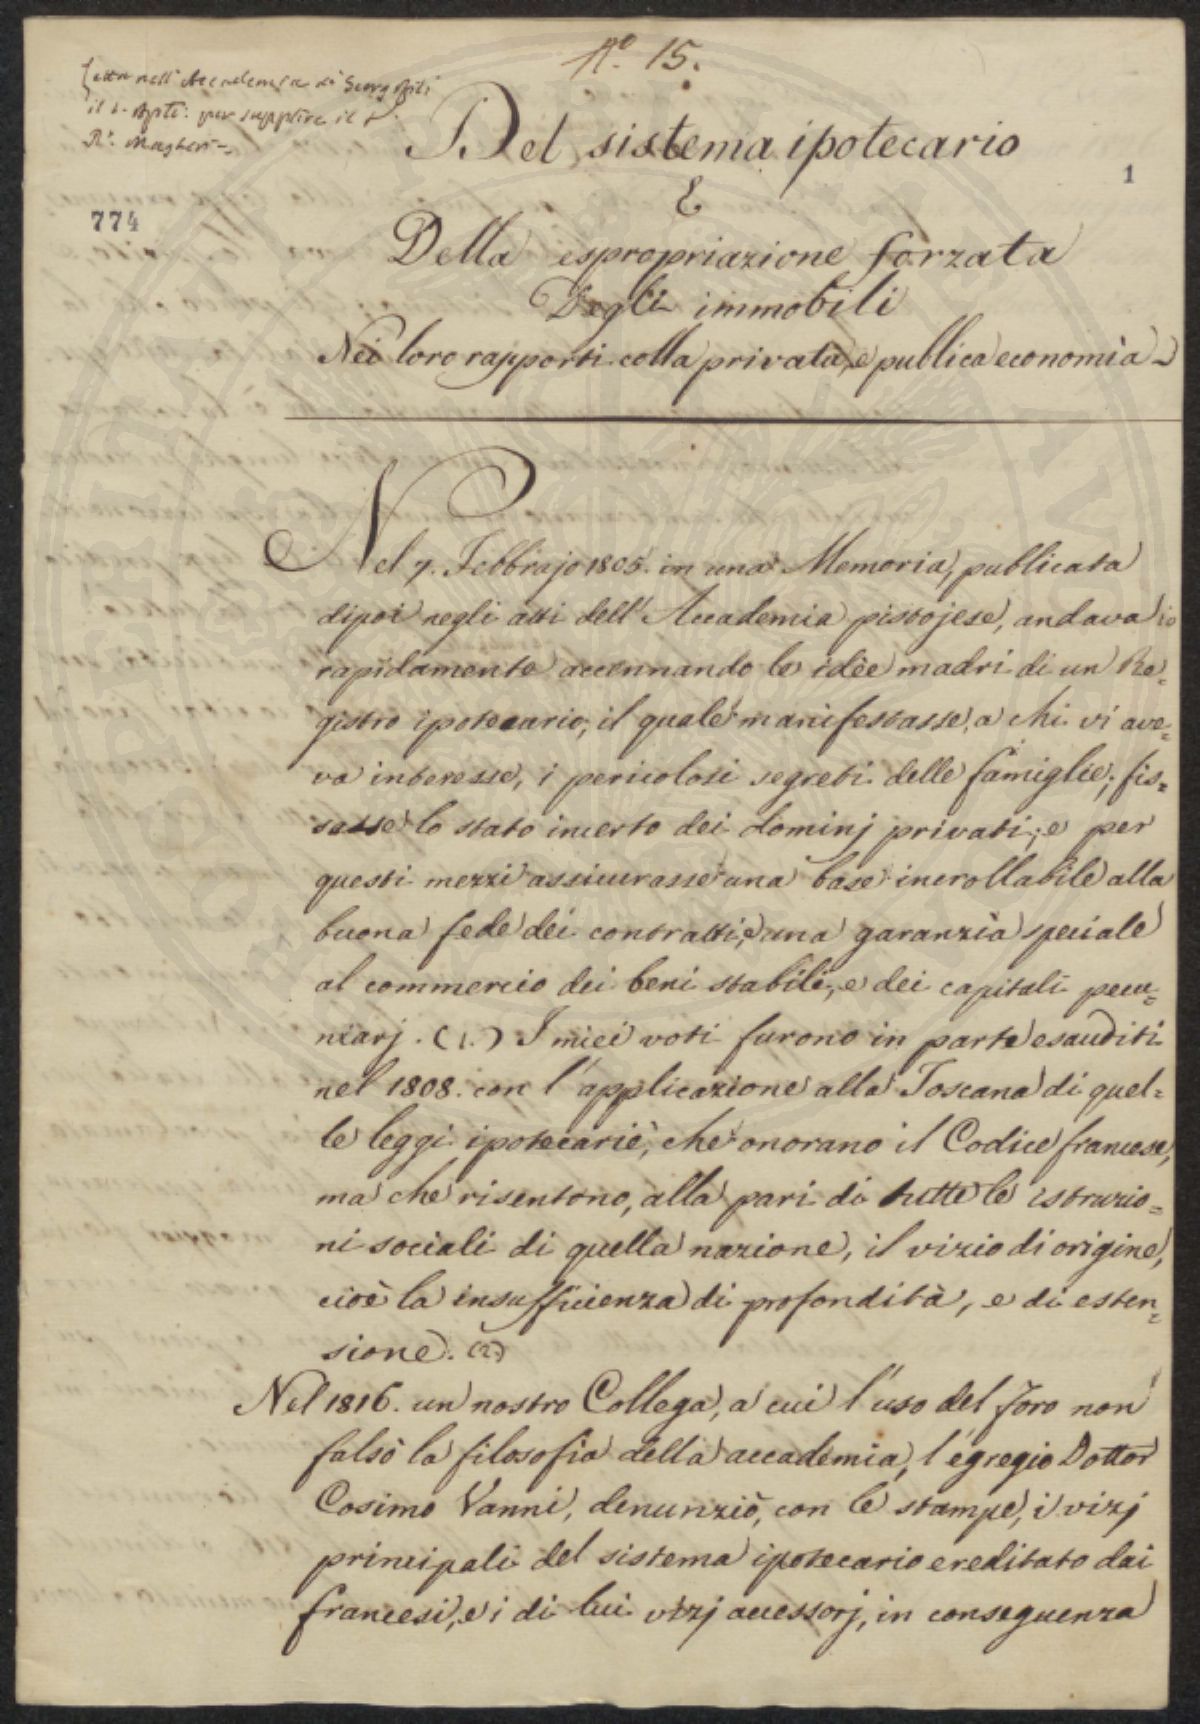 N.° 15.
Letta nell' Accademia dei Georgofili
il 6. per supplire il
774
1
Del sistema ipotecario
E
Della espropriazione forzata
Degli immobili
Nei loro rapporti colla privata, e publica economia
Nel 7. Febbrajo 1805. in una Memoria, publicata
dipoi negli atti dell' Accademia pistojese, andava io
rapidamente accennando le idèe madri di un Re=
gistro ipotecario, il quale manifestasse, a chi vi ave=
va interesse, i pericolosi segreti delle famiglie; fis=
sasse lo stato incerto dei dominj privati; e per
questi mezzi assicurasse una base incrollabile alla
buona fede dei contratti, e una garanzìa speciale
al commercio dei beni stabili, e dei capitali pecu=
niarj. (1.) I miei voti furono in parte esauditi
nel 1808. con l' applicazione alla Toscana di quel=
le leggi ipotecarie, che onorano il Codice francese,
ma che risentono, alla pari di tutte le istruzio=
ni sociali di quella nazione, il vizio di origine,
cioè la insufficienza di profondità, e di esten=
sione. (2.)
Nel 1816. un nostro Collega, a cui l' uso del foro non
falsò la filosofia della accademia, l' egregio Dottor
Cosimo Vanni, denunziò, con le stampe, i vizj
principali del sistema ipotecario ereditato dai
francesi, e i di lui vizj accessorj, in conseguenza